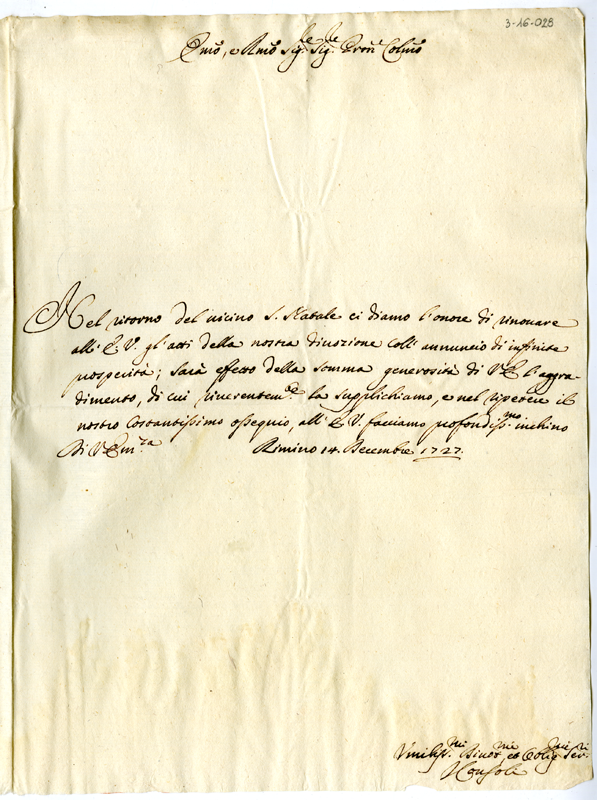 3-16-028
Emo, e Rmo Sig.le Sig.re Pron Colmo
Nel ritorno del vicino S. Natale ci diamo l'onore di rinovare
all' E. V. gl'atti della nostra divozione coll' annuncio di infinite
prosperità; sarà effetto della somma generosità di V. E. l'aggra-
dimento, di cui riverentem.te la supplichiamo, e nel ripetere il
nostro Costantissimo ossequio, all' E. V. facciamo profondiss.mo inchino
Di V. Em.za Rimino 14. Decembre 1727.
Vmiliss.mi Divot.mi et Oblig.mi Ser.ri
Consoli